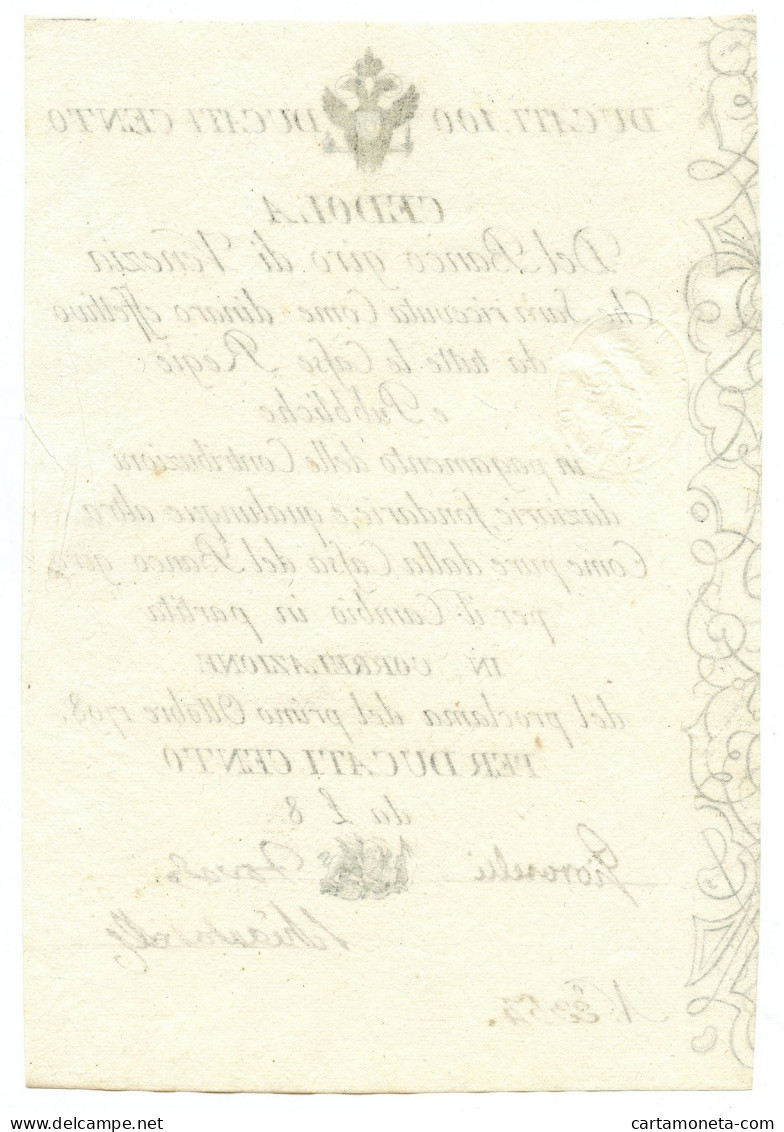 DUCATI. 100 DUCATI CENTO
CEDOLA
Del Banco giro di Venezia
Che Sarà ricevuta Come dinaro effettivo
da tutte le Casse Regie
e Pubbliche
in pagamento delle Contribuzioni
daziarie, fondarie, e qualunque altra
Come pure dalla Cassa del Banco giro
per il Cambio in partita
IN CORRELAZIONE
del proclama del primo Ottobre 1798.
PER DUCATI CENTO
da £ 8
N.
cartamoneta-com @ delcampe.net